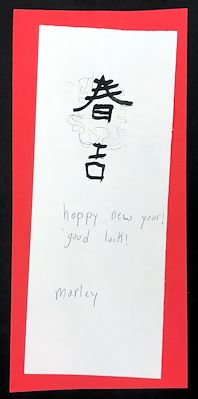 春
吉
happy new year!
good luck!
marley